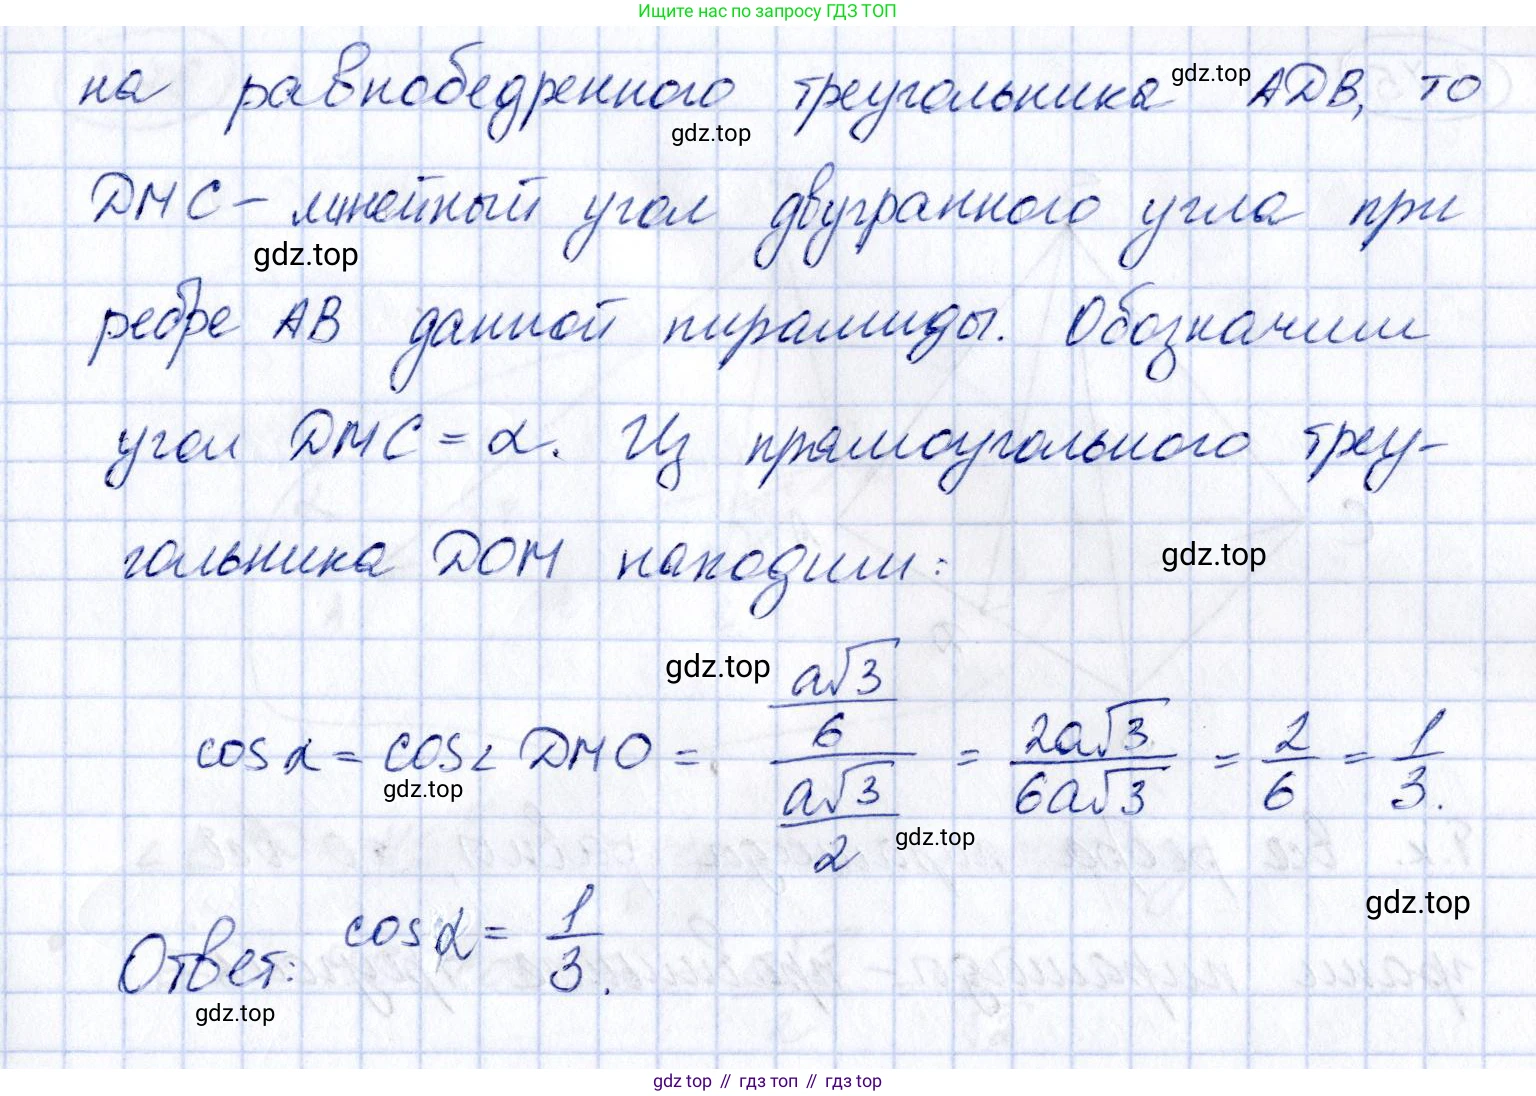 Ищите нас по запросу ГДЗ ТОП
на равнобедренного треугольника ADB, то
gdz.top
gdz.top
DMC – линейный угол двугранного угла при
gdz.top
ребре AB данной пирамиды. Обозначим
угол DMC = α. Из прямоугольного треу-
гольника DOM находим:
gdz.top
gdz.top
cos α = cos ∠ DMO = (a√3/6)/(a√3/2) = 2a√3/6a√3 = 2/6 = 1/3.
gdz.top
gdz.top
gdz.top
Ответ: cos α = 1/3.
gdz.top
gdz top // гдз топ // гдз top